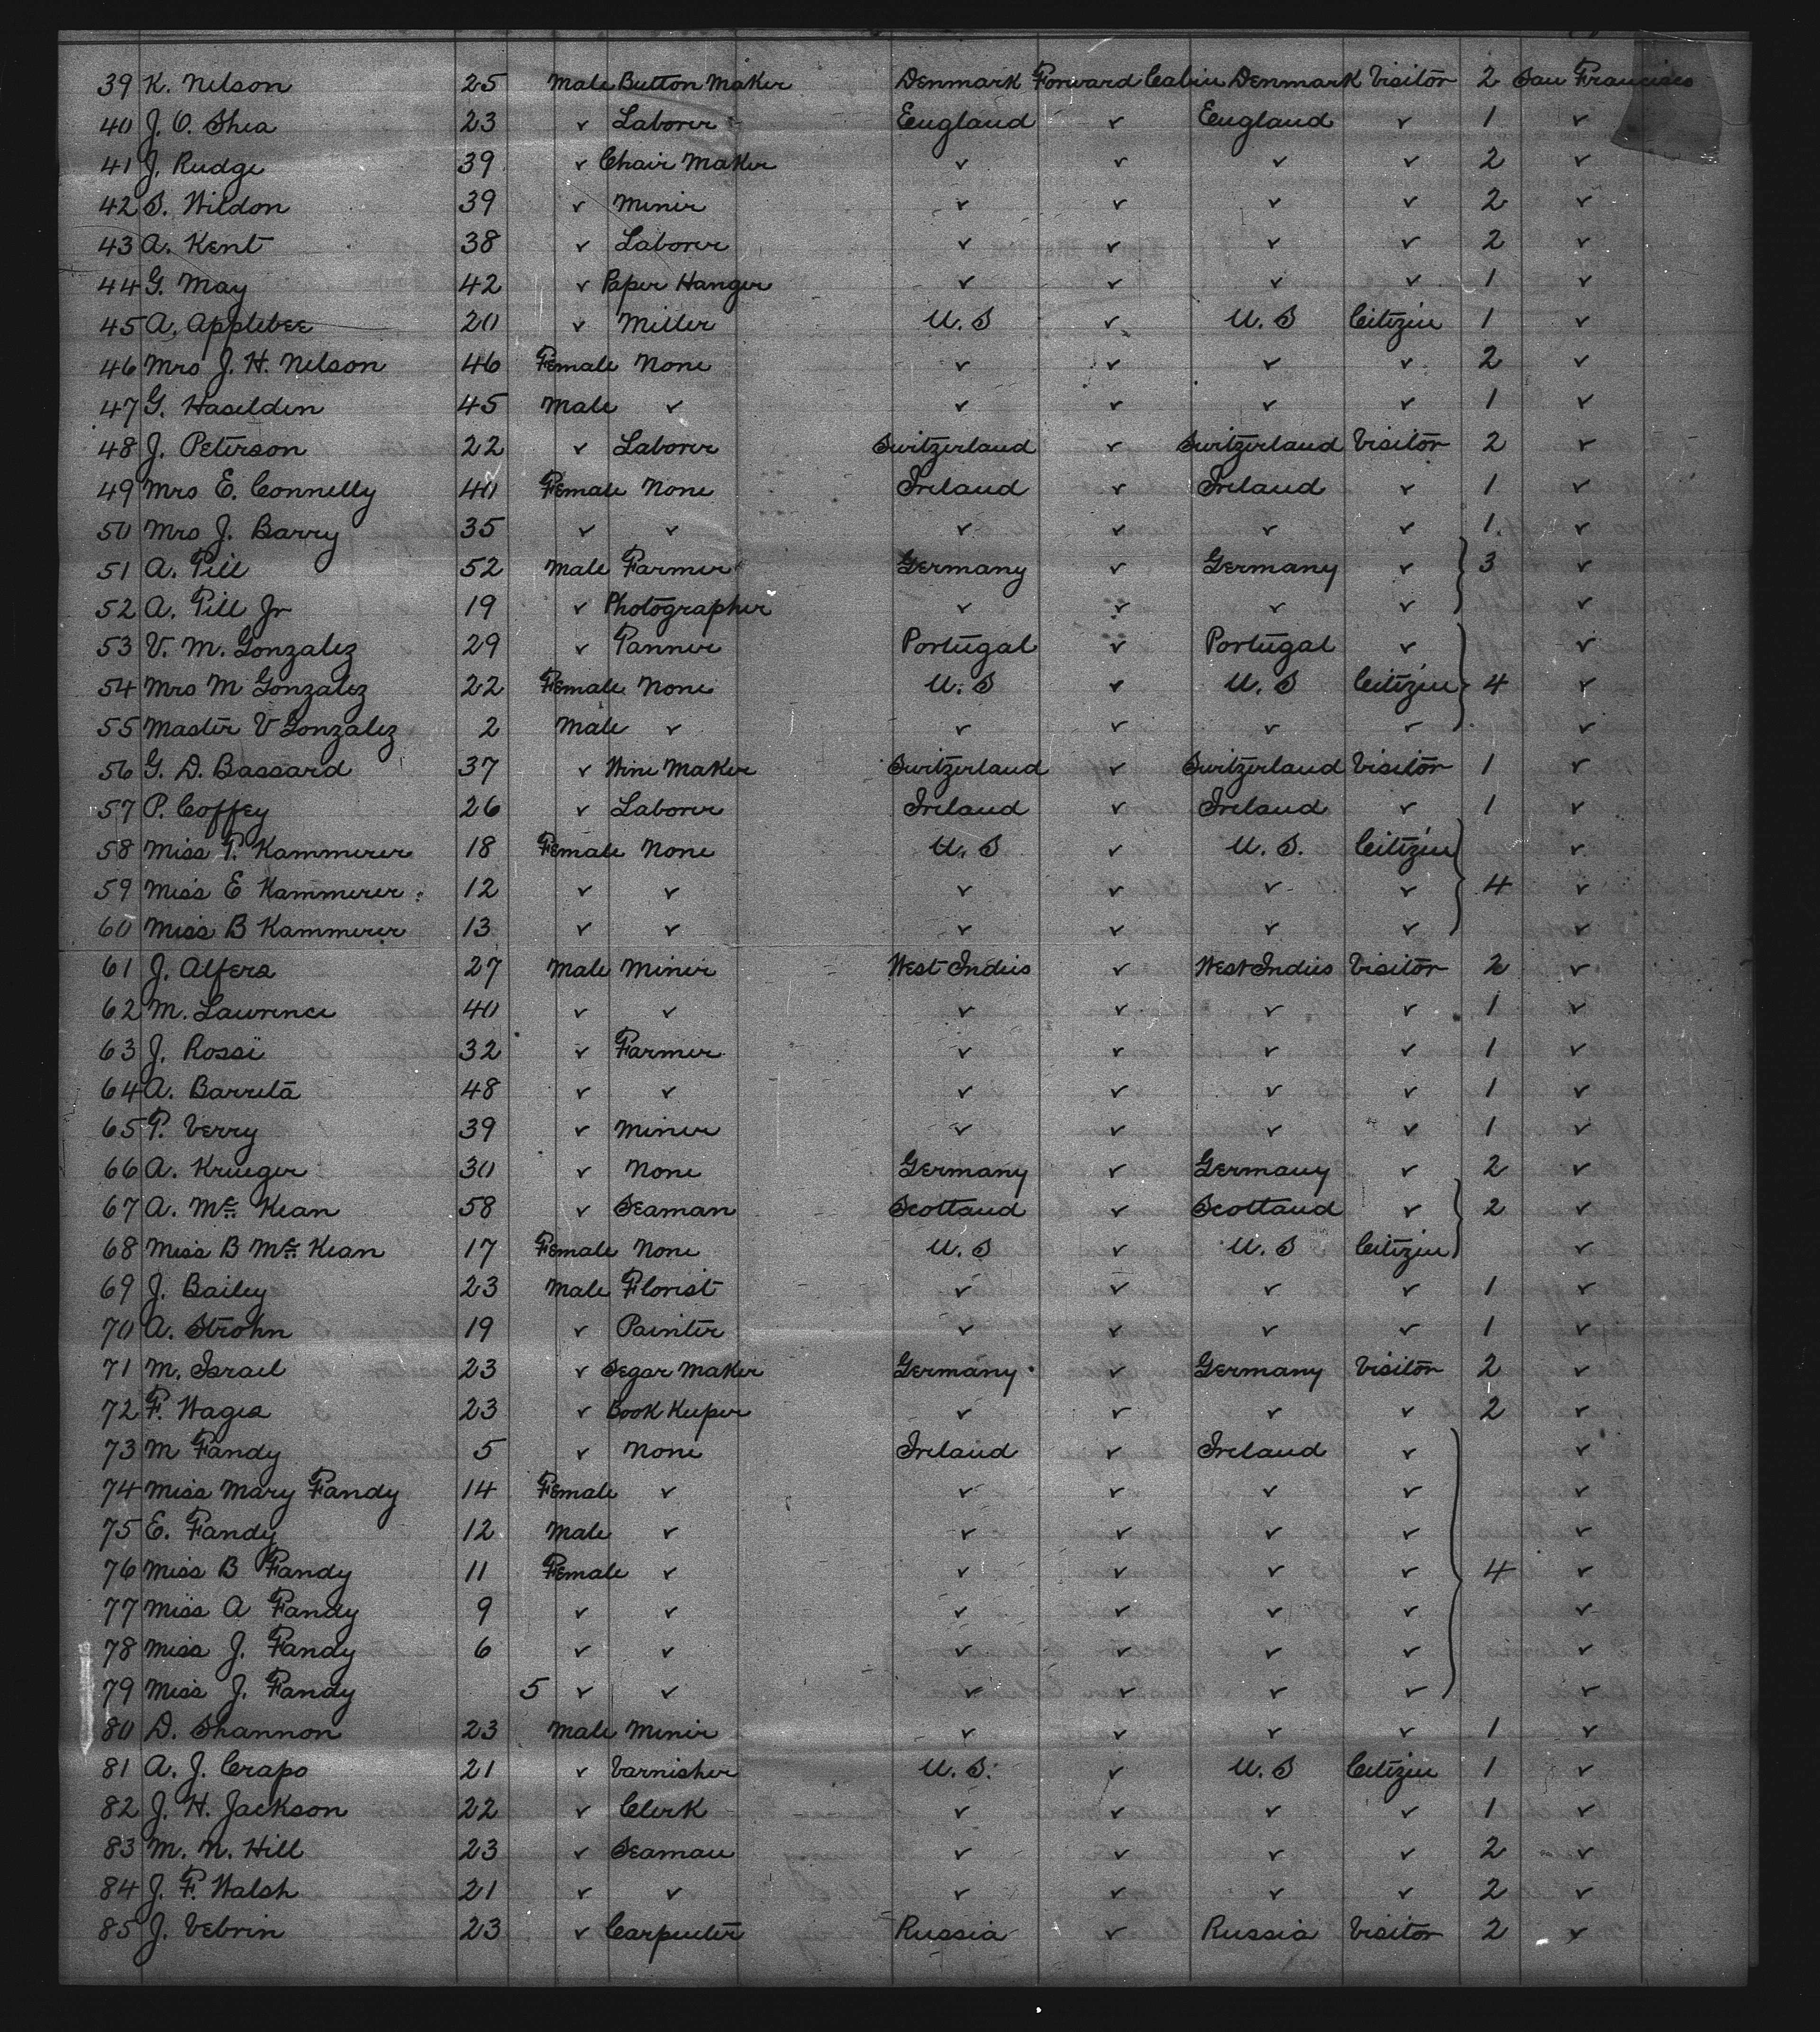 39 K. Nelson 25 Male Button Maker Denmark Forward Cabin Denmark Visitor 2 San Francisco
40 J. O. Shea 23 ✓ Laborer England ✓ England ✓ 1 ✓
41 J. Rudge 39 ✓ Chair Maker ✓ ✓ ✓ ✓ 2 ✓
42 S. Wildon 39 ✓ Miner ✓ ✓ ✓ ✓ 2 ✓
43 A. Kent 38 ✓ Laborer ✓ ✓ ✓ ✓ 2 ✓
44 G. May 42 ✓ Paper Hanger ✓ ✓ ✓ ✓ 1 ✓
45 A. Applebee 20 ✓ Miller U. S ✓ U. S Citizen 1 ✓
46 Mrs J. H. Nelson 46 Female None ✓ ✓ ✓ ✓ 2 ✓
47 G. Haselden 45 Male ✓ ✓ ✓ ✓ ✓ 1 ✓
48 J. Peterson 22 ✓ Laborer Switzerland ✓ Switzerland Visitor 2 ✓
49 Mrs E. Connelly 40 Female None Ireland ✓ Ireland ✓ 1 ✓
50 Mrs J. Barry 35 ✓ ✓ ✓ ✓ ✓ ✓ 1 ✓
51 A. Till 52 Male Farmer Germany ✓ Germany ✓ 3 ✓
52 A. Till Jr 19 ✓ Photographer ✓ ✓ ✓ ✓ ✓
53 V. M. Gonzalez 29 ✓ Tanner Portugal ✓ Portugal ✓ ✓
54 Mrs M Gonzalez 22 Female None U. S ✓ U. S Citizen 4 ✓
55 Master V Gonzalez 2 Male ✓ ✓ ✓ ✓ ✓ ✓
56 G. D. Bassard 37 ✓ Wine Maker Switzerland ✓ Switzerland Visitor 1 ✓
57 P. Coffey 26 ✓ Laborer Ireland ✓ Ireland ✓ 1 ✓
58 Miss T. Kammerer 18 Female None U. S ✓ U. S. Citizen ✓
59 Miss E Kammerer 12 ✓ ✓ ✓ ✓ ✓ ✓ 4 ✓
60 Miss B Kammerer 13 ✓ ✓ ✓ ✓ ✓ ✓ ✓
61 J. Alfers 27 Male Miner West Indies ✓ West Indies Visitor 2 ✓
62 M. Lawrence 40 ✓ ✓ ✓ ✓ ✓ ✓ 1 ✓
63 J. Rossi 32 ✓ Farmer ✓ ✓ ✓ ✓ 1 ✓
64 A. Barreta 48 ✓ ✓ ✓ ✓ ✓ ✓ 1 ✓
65 T. Verry 39 ✓ Miner ✓ ✓ ✓ ✓ 1 ✓
66 A. Krueger 30 ✓ None Germany ✓ Germany ✓ 2 ✓
67 A. Mc Kean 58 ✓ Seaman Scotland ✓ Scotland ✓ 2 ✓
68 Miss B Mc Kean 17 Female None U. S ✓ U. S Citizen ✓
69 J. Bailey 23 Male Florist ✓ ✓ ✓ ✓ 1 ✓
70 A. Strohn 19 ✓ Painter ✓ ✓ ✓ ✓ 1 ✓
71 M. Israel 23 ✓ Segar Maker Germany ✓ Germany Visitor 2 ✓
72 F. Wages 23 ✓ Book Keeper ✓ ✓ ✓ ✓ 2 ✓
73 M Fandy 5 ✓ None Ireland ✓ Ireland ✓ ✓
74 Miss Mary Fandy 14 Female ✓ ✓ ✓ ✓ ✓ ✓
75 E. Fandy 12 Male ✓ ✓ ✓ ✓ ✓ ✓
76 Miss B Fandy 11 Female ✓ ✓ ✓ ✓ ✓ 4 ✓
77 Miss A Fandy 9 ✓ ✓ ✓ ✓ ✓ ✓ ✓
78 Miss J. Fandy 6 ✓ ✓ ✓ ✓ ✓ ✓ ✓
79 Miss J. Fandy 5 ✓ ✓ ✓ ✓ ✓ ✓ ✓
80 D. Shannon 23 Male Miner ✓ ✓ ✓ ✓ 1 ✓
81 A. J. Crapo 21 ✓ Varnisher U. S. ✓ U. S Citizen 1 ✓
82 J. H. Jackson 22 ✓ Clerk ✓ ✓ ✓ ✓ 1 ✓
83 M. N. Hill 23 ✓ Seaman ✓ ✓ ✓ ✓ 2 ✓
84 J. F. Walsh 21 ✓ ✓ ✓ ✓ ✓ ✓ 2 ✓
85 J. Vebrin 23 ✓ Carpenter Russia ✓ Russia Visitor 2 ✓